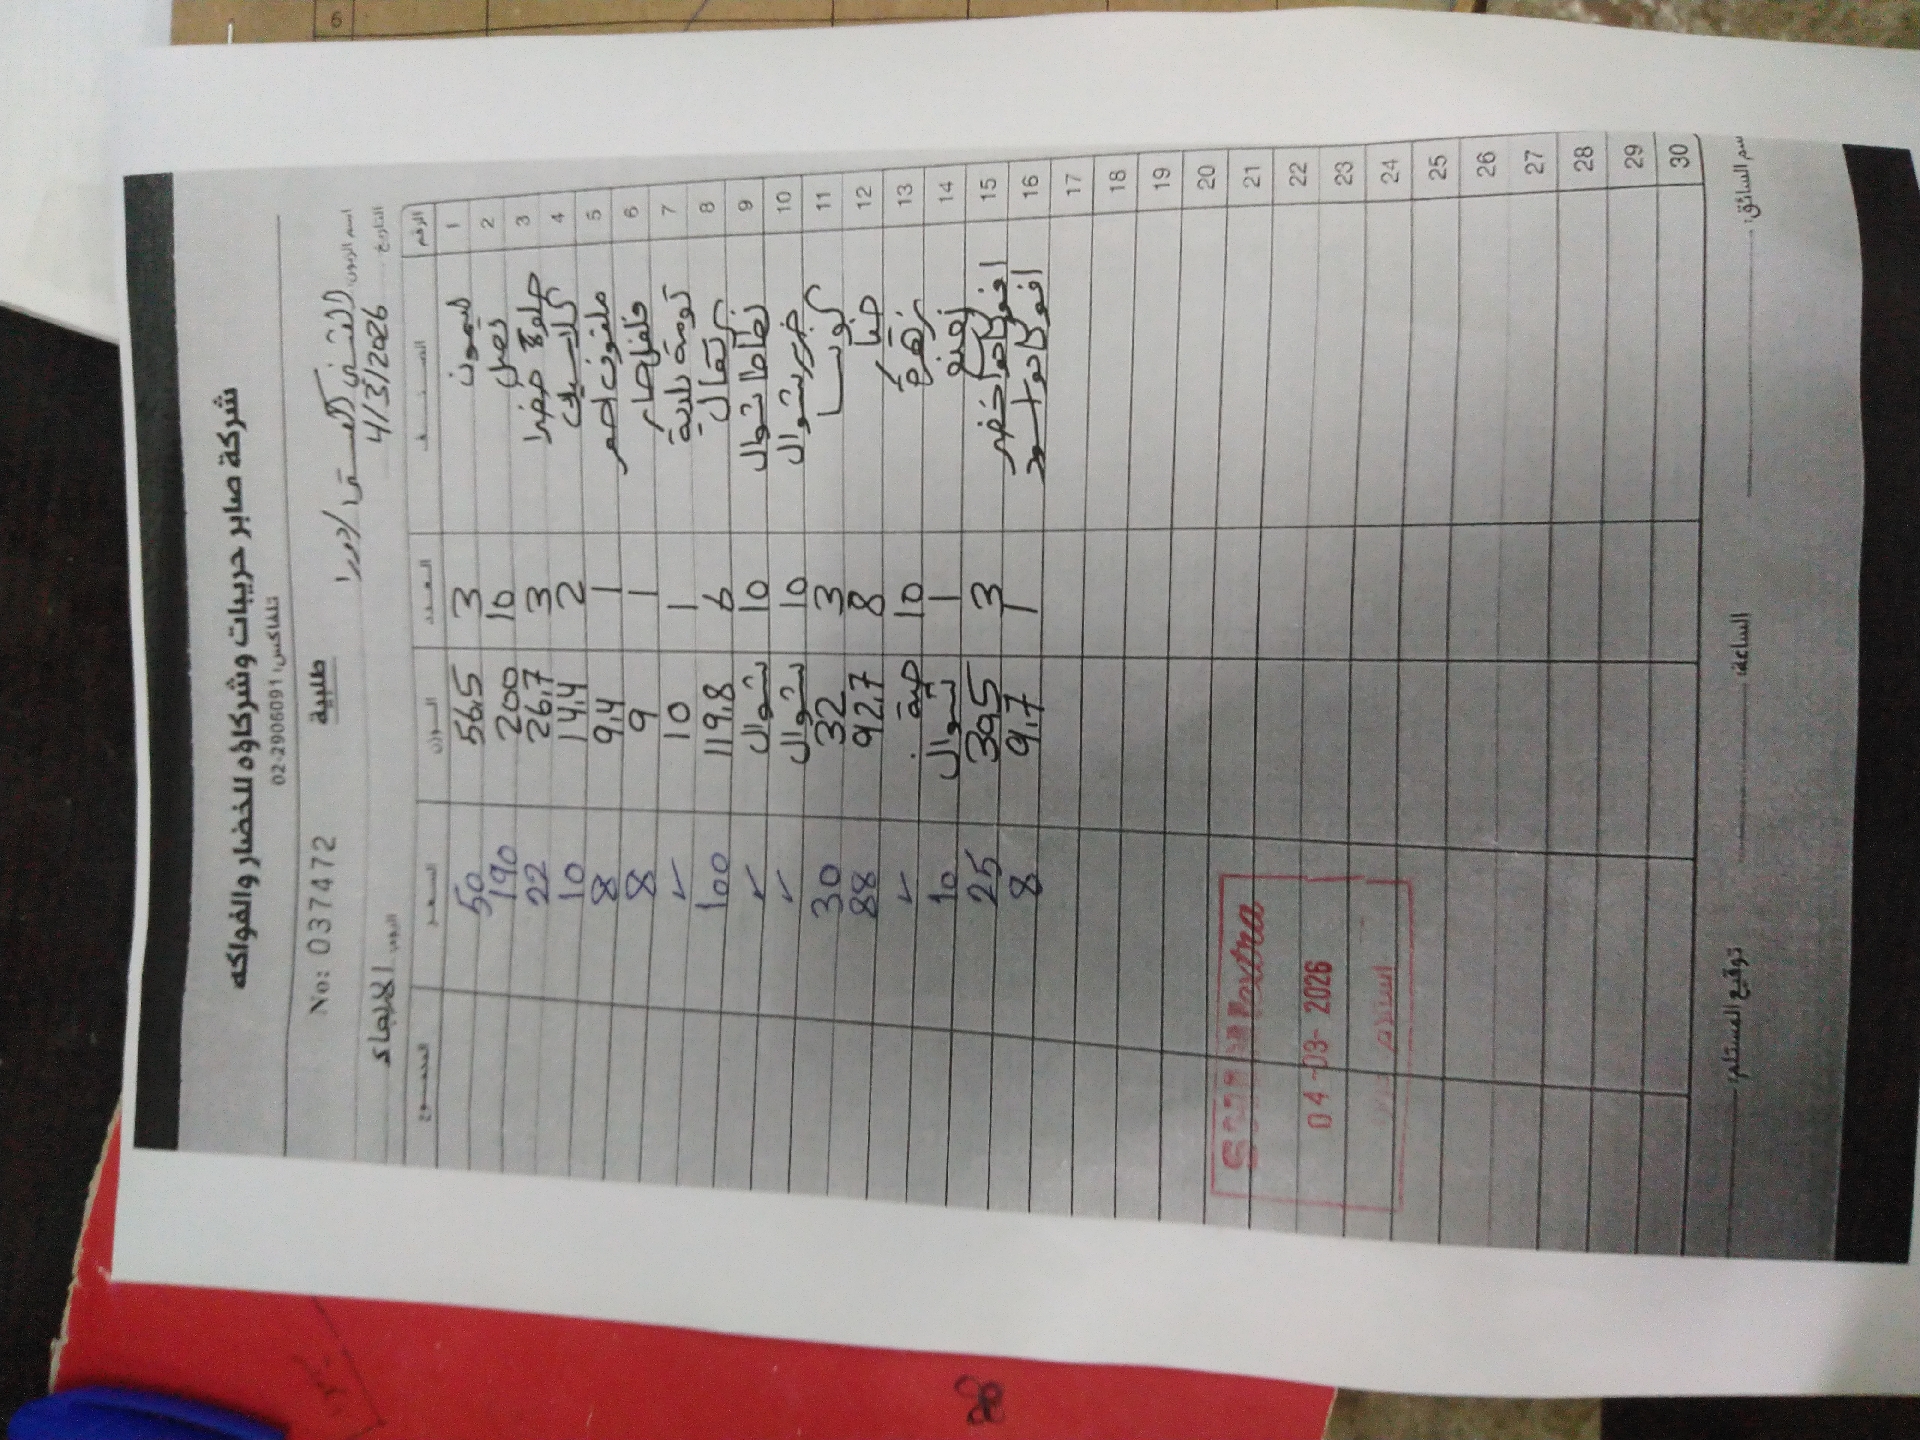 شركة صابر حريبات وشركاؤه للخضار والفواكه
تلفاكس: 02-2906091
طلبية
No: 037472
اسم الزبون
التاريخ 4/3/2026
اليوم الاربعاء
الرقم الصنف العدد الوزن السعر المجموع
1 ليمون 3 56.5 50
2 بصل 10 200 190
3 حلوة خضرا 3 26.7 22
4 2 14.4 10
5 ملفوف احمر 1 9.4 8
6 فلفل حار 1 9 8
7 1 10 ✓
8 برتقال 6 119.8 100
9 بطاطا شوال 10 شوال ✓
10 جزر شوال 10 شوال ✓
11 كوسا 3 32 30
12 8 92.7 88
13 زهرة 10 حبة ✓
14 1 شوال 10
15 افوكادو اخضر 3 39.5 25
16 افوكادو اسود 1 9.7 8
17
18
19
20
21
22
23
24
25
26
27
28
29
30
extra
04-03-2026
استلام
اسم السائق: الساعة: توقيع المستلم:
6